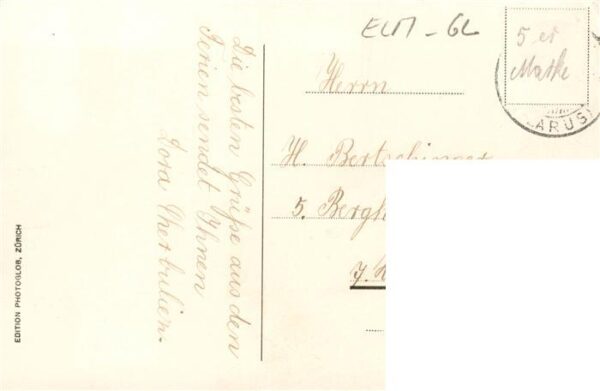 ELM - GL
5 er
Marke
ARUS)
Herrn
H. Bertschinger
5. Bergh
Die besten Grüße aus den
Ferien sendet Ihnen
Dora Therbulien.
EDITION PHOTOGLOB, ZÜRICH